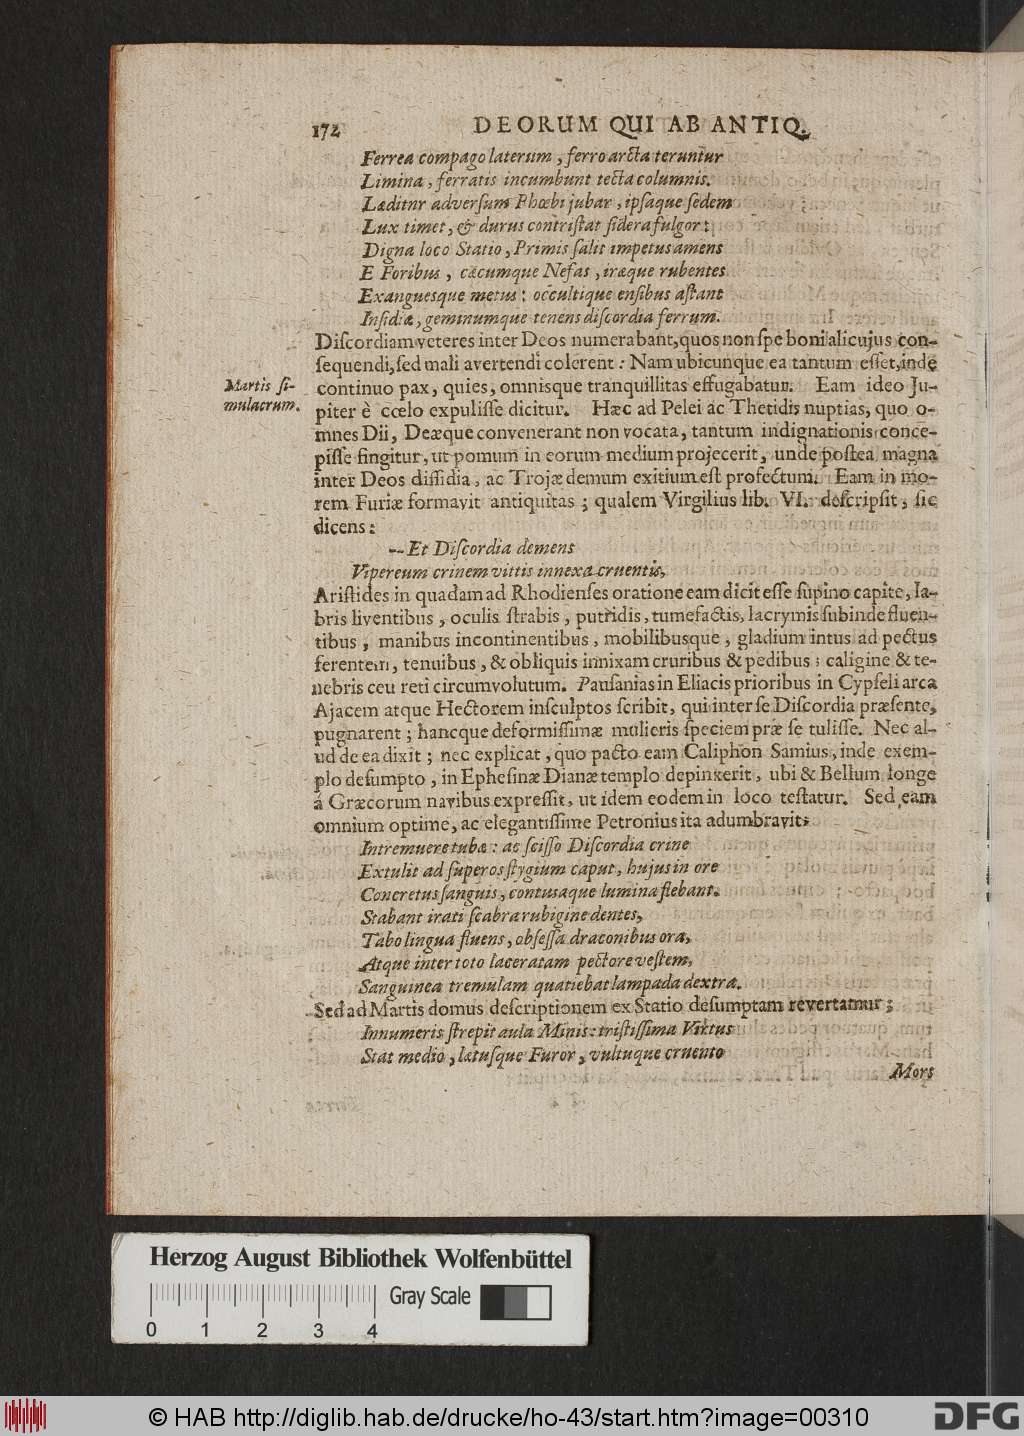 172 DEORUM QUI AB ANTIQ.
Ferrea compago laterum, ferro arcta teruntur
Limina, ferratis incumbunt tecta columnis.
Læditur adversum Phœbi jubar, ipsaque sedem
Lux timet, & durus contristat sidera fulgor:
Digna loco Statio, Primis salit impetus amens
E Foribus, cæcumque Nefas, iræque rubentes
Exanguesque metus: occultique ensibus astant
Insidiæ, geminumque tenens discordia ferrum.
Discordiam veteres inter Deos numerabant, quos non spe boni alicujus con-
sequendi, sed mali avertendi colerent: Nam ubicunque ea tantum esset, inde
Martis si-
mulacrum.
continuo pax, quies, omnisque tranquillitas effugabatur. Eam ideo Ju-
piter è cœlo expulisse dicitur. Hæc ad Pelei ac Thetidis nuptias, quo o-
mnes Dii, Deæque convenerant non vocata, tantum indignationis conce-
pisse fingitur, ut pomum in eorum medium projecerit, unde postea magna
inter Deos dissidia, ac Trojæ demum exitium est profectum. Eam in mo-
rem Furiæ formavit antiquitas; qualem Virgilius lib. VI. descripsit, sic
dicens:
-- Et Discordia demens
Vipereum crinem vittis innexa cruentis,
Aristides in quadam ad Rhodienses oratione eam dicit esse supino capite, la-
bris liventibus, oculis strabis, putridis, tumefactis, lacrymis subinde fluen-
tibus, manibus incontinentibus, mobilibusque, gladium intus ad pectus
ferentem, tenuibus, & obliquis innixam cruribus & pedibus; caligine & te-
nebris ceu reti circumvolutum. Pausanias in Eliacis prioribus in Cypseli arca
Ajacem atque Hectorem insculptos scribit, qui inter se Discordia præsente,
pugnarent; hancque deformissimæ mulieris speciem præ se tulisse. Nec al-
ud de ea dixit; nec explicat, quo pacto eam Caliphon Samius, inde exem-
plo desumpto, in Ephesinæ Dianæ templo depinxerit, ubi & Bellum longe
á Græcorum navibus expressit, ut idem eodem in loco testatur. Sed eam
omnium optime, ac elegantissime Petronius ita adumbravit:
Intremuere tubæ: ac scisso Discordia crine
Extulit ad superos stygium caput, hujus in ore
Concretus sanguis, contusaque lumina flebant.
Stabant irati scabra rubigine dentes,
Tabo lingua fluens, obsessa draconibus ora,
Atque inter toto laceratam pectore vestem,
Sanguinea tremulam quatiebat lampada dextra.
Sed ad Martis domus descriptionem ex Statio desumptam revertamur;
Innumeris strepit aula Minis: tristissima Virtus
Stat medio, lætusque Furor, vultuque cruento
Mors
Herzog August Bibliothek Wolfenbüttel
Gray Scale
0 1 2 3 4
© HAB http://diglib.hab.de/drucke/ho-43/start.htm?image=00310
DFG